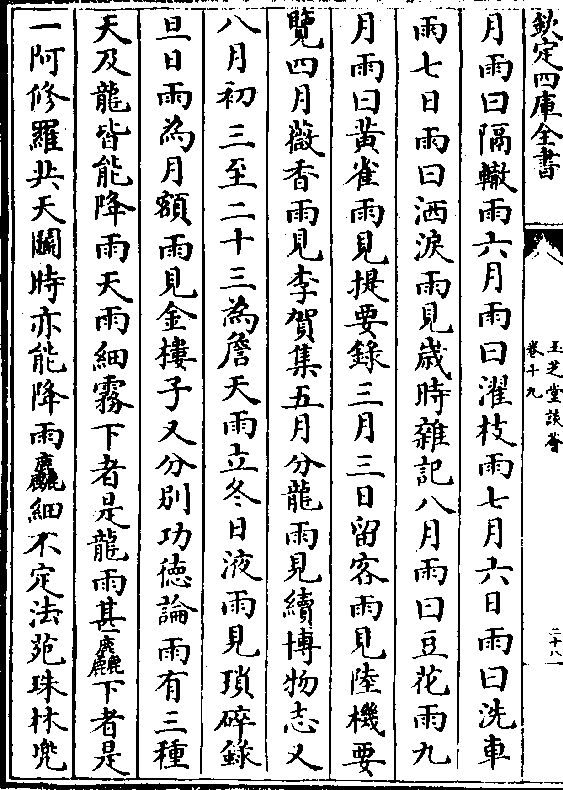 欽定四庫全書
玉芝堂談薈
卷十九
二十八
月雨曰隔轍雨六月雨曰濯枝雨七月六日雨曰洗車
雨七日雨曰洒淚雨見歳時雜記八月雨曰豆花雨九
月雨曰黃雀雨見提要錄三月三日留客雨見陸機要
覽四月薇香雨見李賀集五月分龍雨見續博物志又
八月初三至二十三為詹天雨立冬日液雨見瑣碎錄
旦日雨為月額雨見金樓子又分別功徳論雨有三種
天及龍皆能降雨天雨細霧下者是龍雨甚麤下者是
一阿修羅共天鬭時亦能降雨麤細不定法苑珠林兜